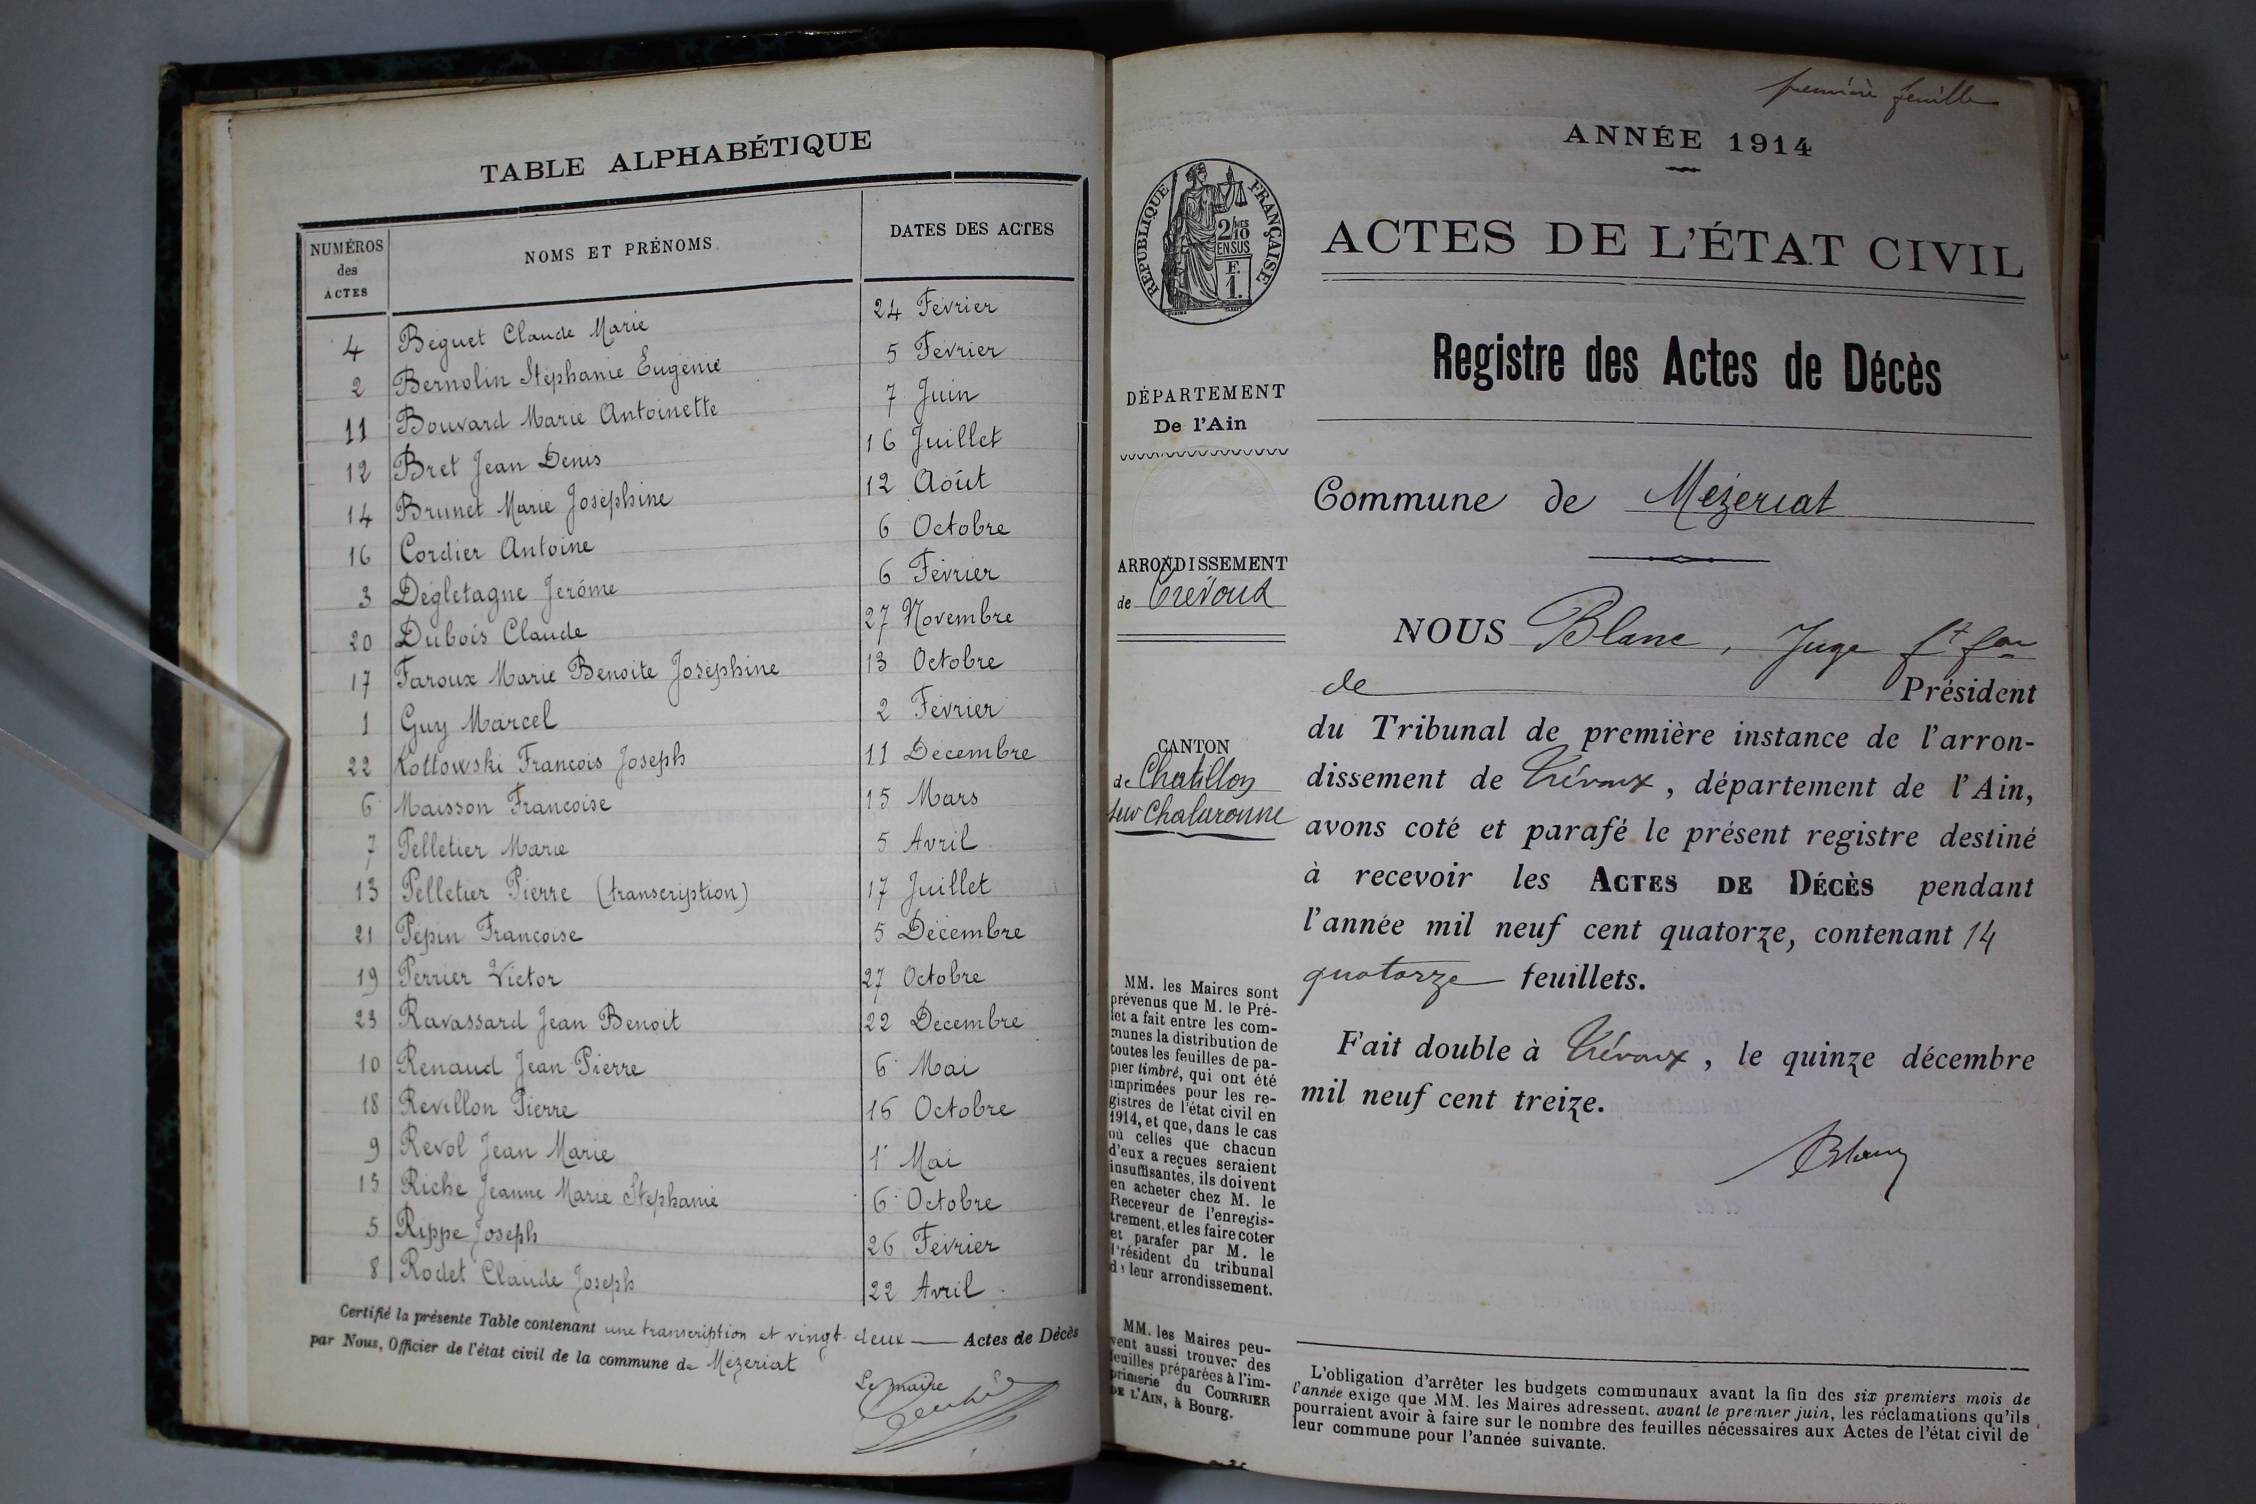 TABLE ALPHABÉTIQUE
NUMÉROS des ACTES
NOMS ET PRÉNOMS
DATES DES ACTES
4 Béguet Claude Marie 24 Février
2 Bernolin Stéphanie Eugénie 5 Février
11 Bouvard Marie Antoinette 7 Juin
12 Bret Jean Denis 16 Juillet
14 Brunet Marie Joséphine 12 Août
16 Cordier Antoine 6 Octobre
3 Dégletagne Jérôme 6 Février
20 Dubois Claude 27 Novembre
17 Faroux Marie Benoite Joséphine 13 Octobre
1 Guy Marcel 2 Février
22 Kottowski François Joseph 11 Décembre
6 Maisson Françoise 15 Mars
7 Pelletier Marie 5 Avril
13 Pelletier Pierre (transcription) 17 Juillet
21 Pépin Françoise 5 Décembre
19 Perrier Victor 27 Octobre
23 Ravassard Jean Benoit 22 Décembre
10 Renaud Jean Pierre 6 Mai
18 Revillon Pierre 16 Octobre
9 Revol Jean Marie 1 Mai
15 Riche Jeanne Marie Stéphanie 6 Octobre
5 Rippe Joseph 26 Février
8 Rodet Claude Joseph 22 Avril
Certifié la présente Table contenant une transcription et vingt-deux Actes de Décès
par Nous, Officier de l'état civil de la commune de Mézériat
Le maire
première feuille
ANNÉE 1914
RÉPUBLIQUE FRANÇAISE
ACTES DE L'ÉTAT CIVIL
Registre des Actes de Décès
DÉPARTEMENT
De l'Ain
Commune de Mézériat
ARRONDISSEMENT
de Trévoux
NOUS Blanc, Juge ft fon
de Président
du Tribunal de première instance de l'arron-
dissement de Trévoux, département de l'Ain,
avons coté et parafé le présent registre destiné
à recevoir les ACTES DE DÉCÈS pendant
l'année mil neuf cent quatorze, contenant 14
quatorze feuillets.
Fait double à Trévoux, le quinze décembre
mil neuf cent treize.
Blanc
CANTON
de Chatillon
sur Chalaronne
MM. les Maires sont
prévenus que M. le Pré-
fet a fait entre les com-
munes la distribution de
toutes les feuilles de pa-
pier timbré, qui ont été
imprimées pour les re-
gistres de l'état civil en
1914, et que, dans le cas
où celles que chacun
d'eux a reçues seraient
insuffisantes, ils doivent
en acheter chez M. le
Receveur de l'enregis-
trement, et les faire coter
et parafer par M. le
Président du tribunal
de leur arrondissement.
MM. les Maires peu-
vent aussi trouver des
feuilles préparées à l'im-
primerie du COURRIER
DE L'AIN, à Bourg.
L'obligation d'arrêter les budgets communaux avant la fin des six premiers mois de
l'année exige que MM. les Maires adressent, avant le premier juin, les réclamations qu'ils
pourraient avoir à faire sur le nombre des feuilles nécessaires aux Actes de l'état civil de
leur commune pour l'année suivante.